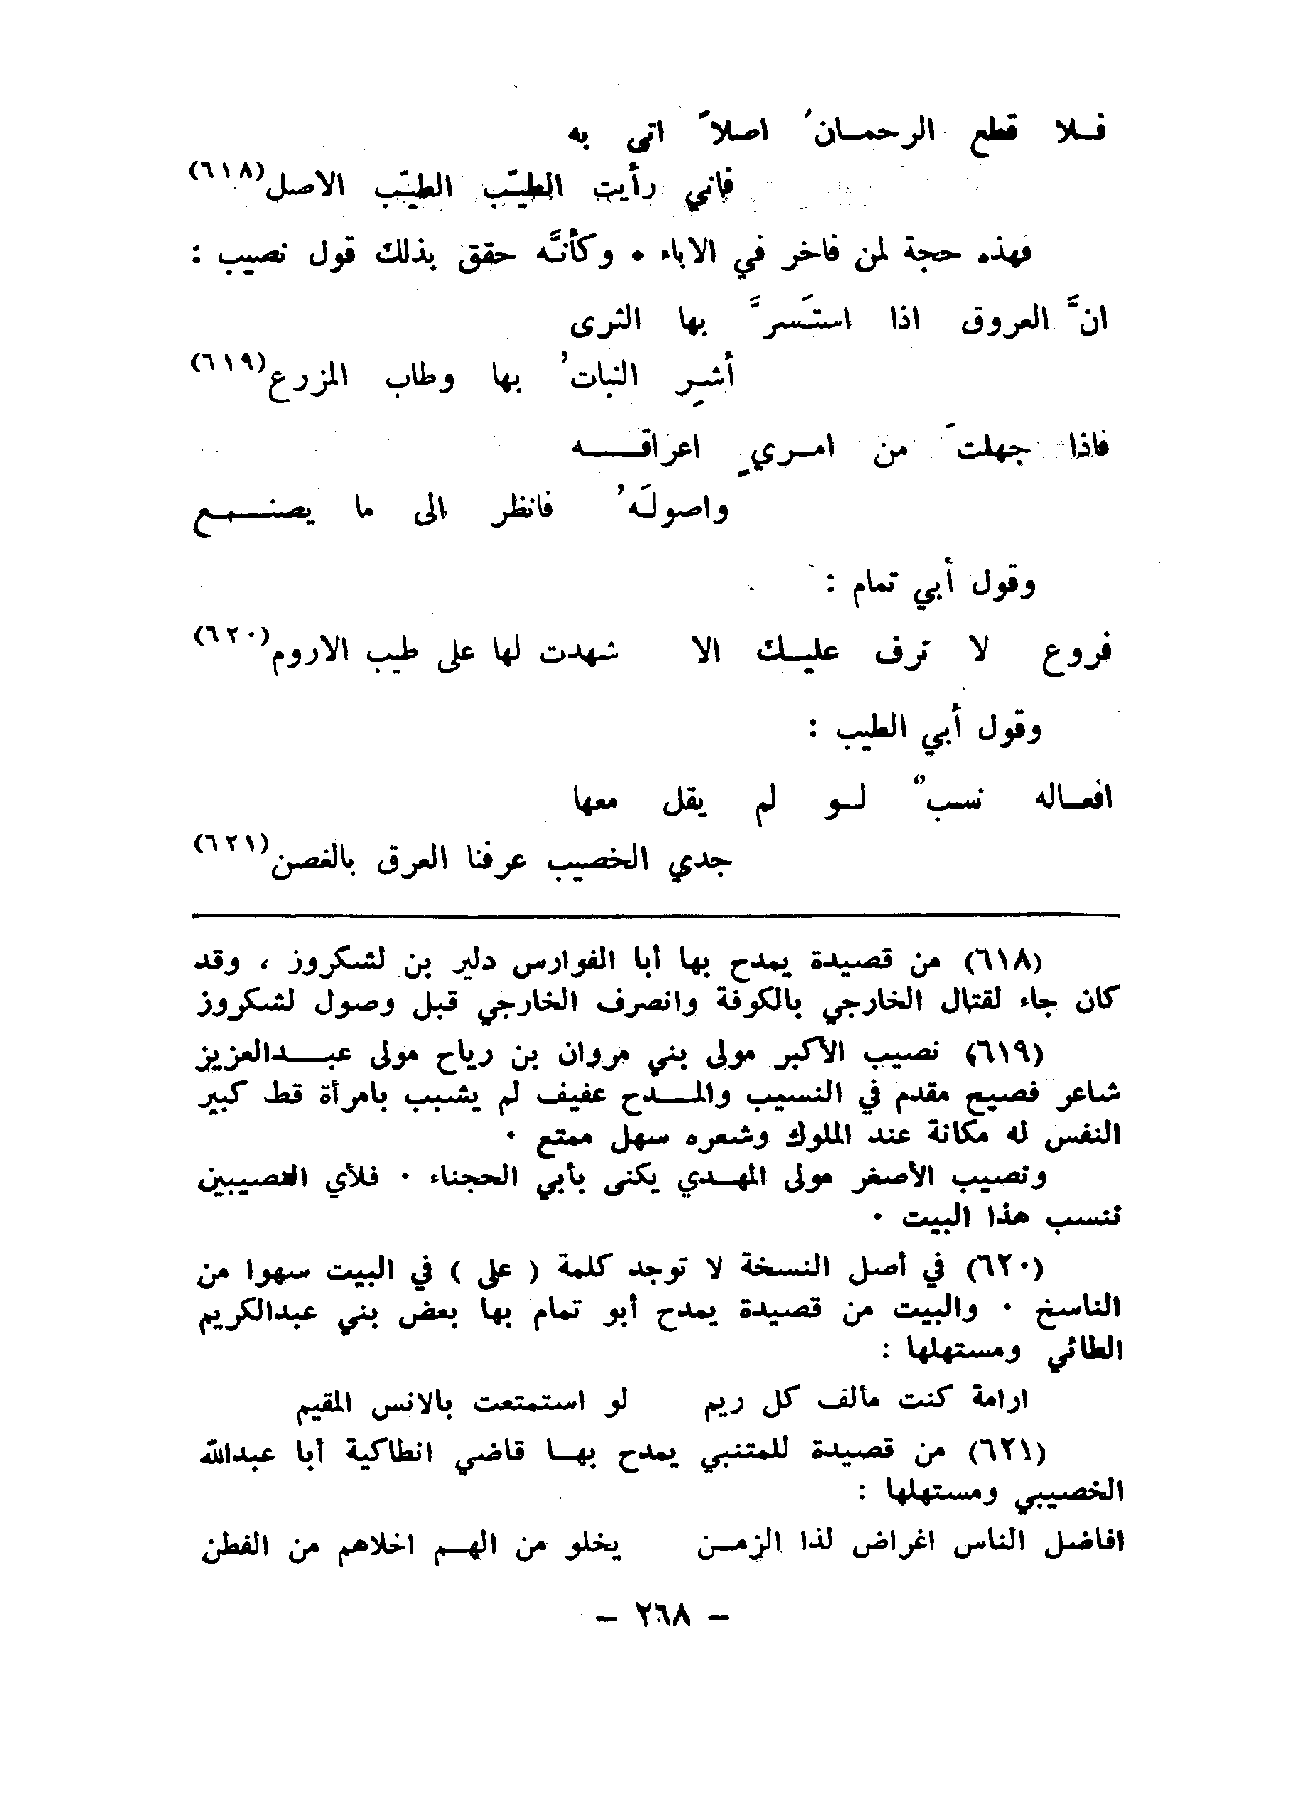 فـلا قطع الرحمـانُ اصلاً اتى به
فاني رأيت الطيّب الطيّب الاصل(٦١٨)
فهذه حجة لمن فاخر في الاباء . وكأنَّه حقق بذلك قول نصيب :
انَّ العروق اذا استَسرَّ بها الثرى
أشِر النباتُ بها وطاب المزرع(٦١٩)
فاذا جهلتَ من امـريٍ اعراقـــه
واصولَهُ فانظر الى ما يصنـــع
وقول أبي تمام :
فروع لا ترف عليـك الا شهدت لها على طيب الاروم(٦٢٠)
وقول أبي الطيب :
افعـاله نسبٌ لـو لم يقل معها
جدي الخصيب عرفنا العرق بالغصن(٦٢١)
(٦١٨) من قصيدة يمدح بها أبا الفوارس دلير بن لشكروز ، وقد
كان جاء لقتال الخارجي بالكوفة وانصرف الخارجي قبل وصول لشكروز
(٦١٩) نصيب الأكبر مولى بني مروان بن رياح مولى عبـــدالعزيز
شاعر فصيح مقدم في النسيب والمـــدح عفيف لم يشبب بامرأة قط كبير
النفس له مكانة عند الملوك وشعره سهل ممتع .
ونصيب الأصغر مولى المهـدي يكنى بأبي الحجناء . فلأي النصيبين
ننسب هذا البيت .
(٦٢٠) في أصل النسخة لا توجد كلمة ( على ) في البيت سهوا من
الناسخ . والبيت من قصيدة يمدح أبو تمام بها بعض بني عبدالكريم
الطائي ومستهلها :
ارامة كنت مألف كل ريم لو استمتعت بالانس المقيم
(٦٢١) من قصيدة للمتنبي يمدح بهـا قاضي انطاكية أبا عبدالله
الخصيبي ومستهلها :
افاضل الناس اغراض لذا الزمـن يخلو من الهـم اخلاهم من الفطن
– ٢٦٨ –